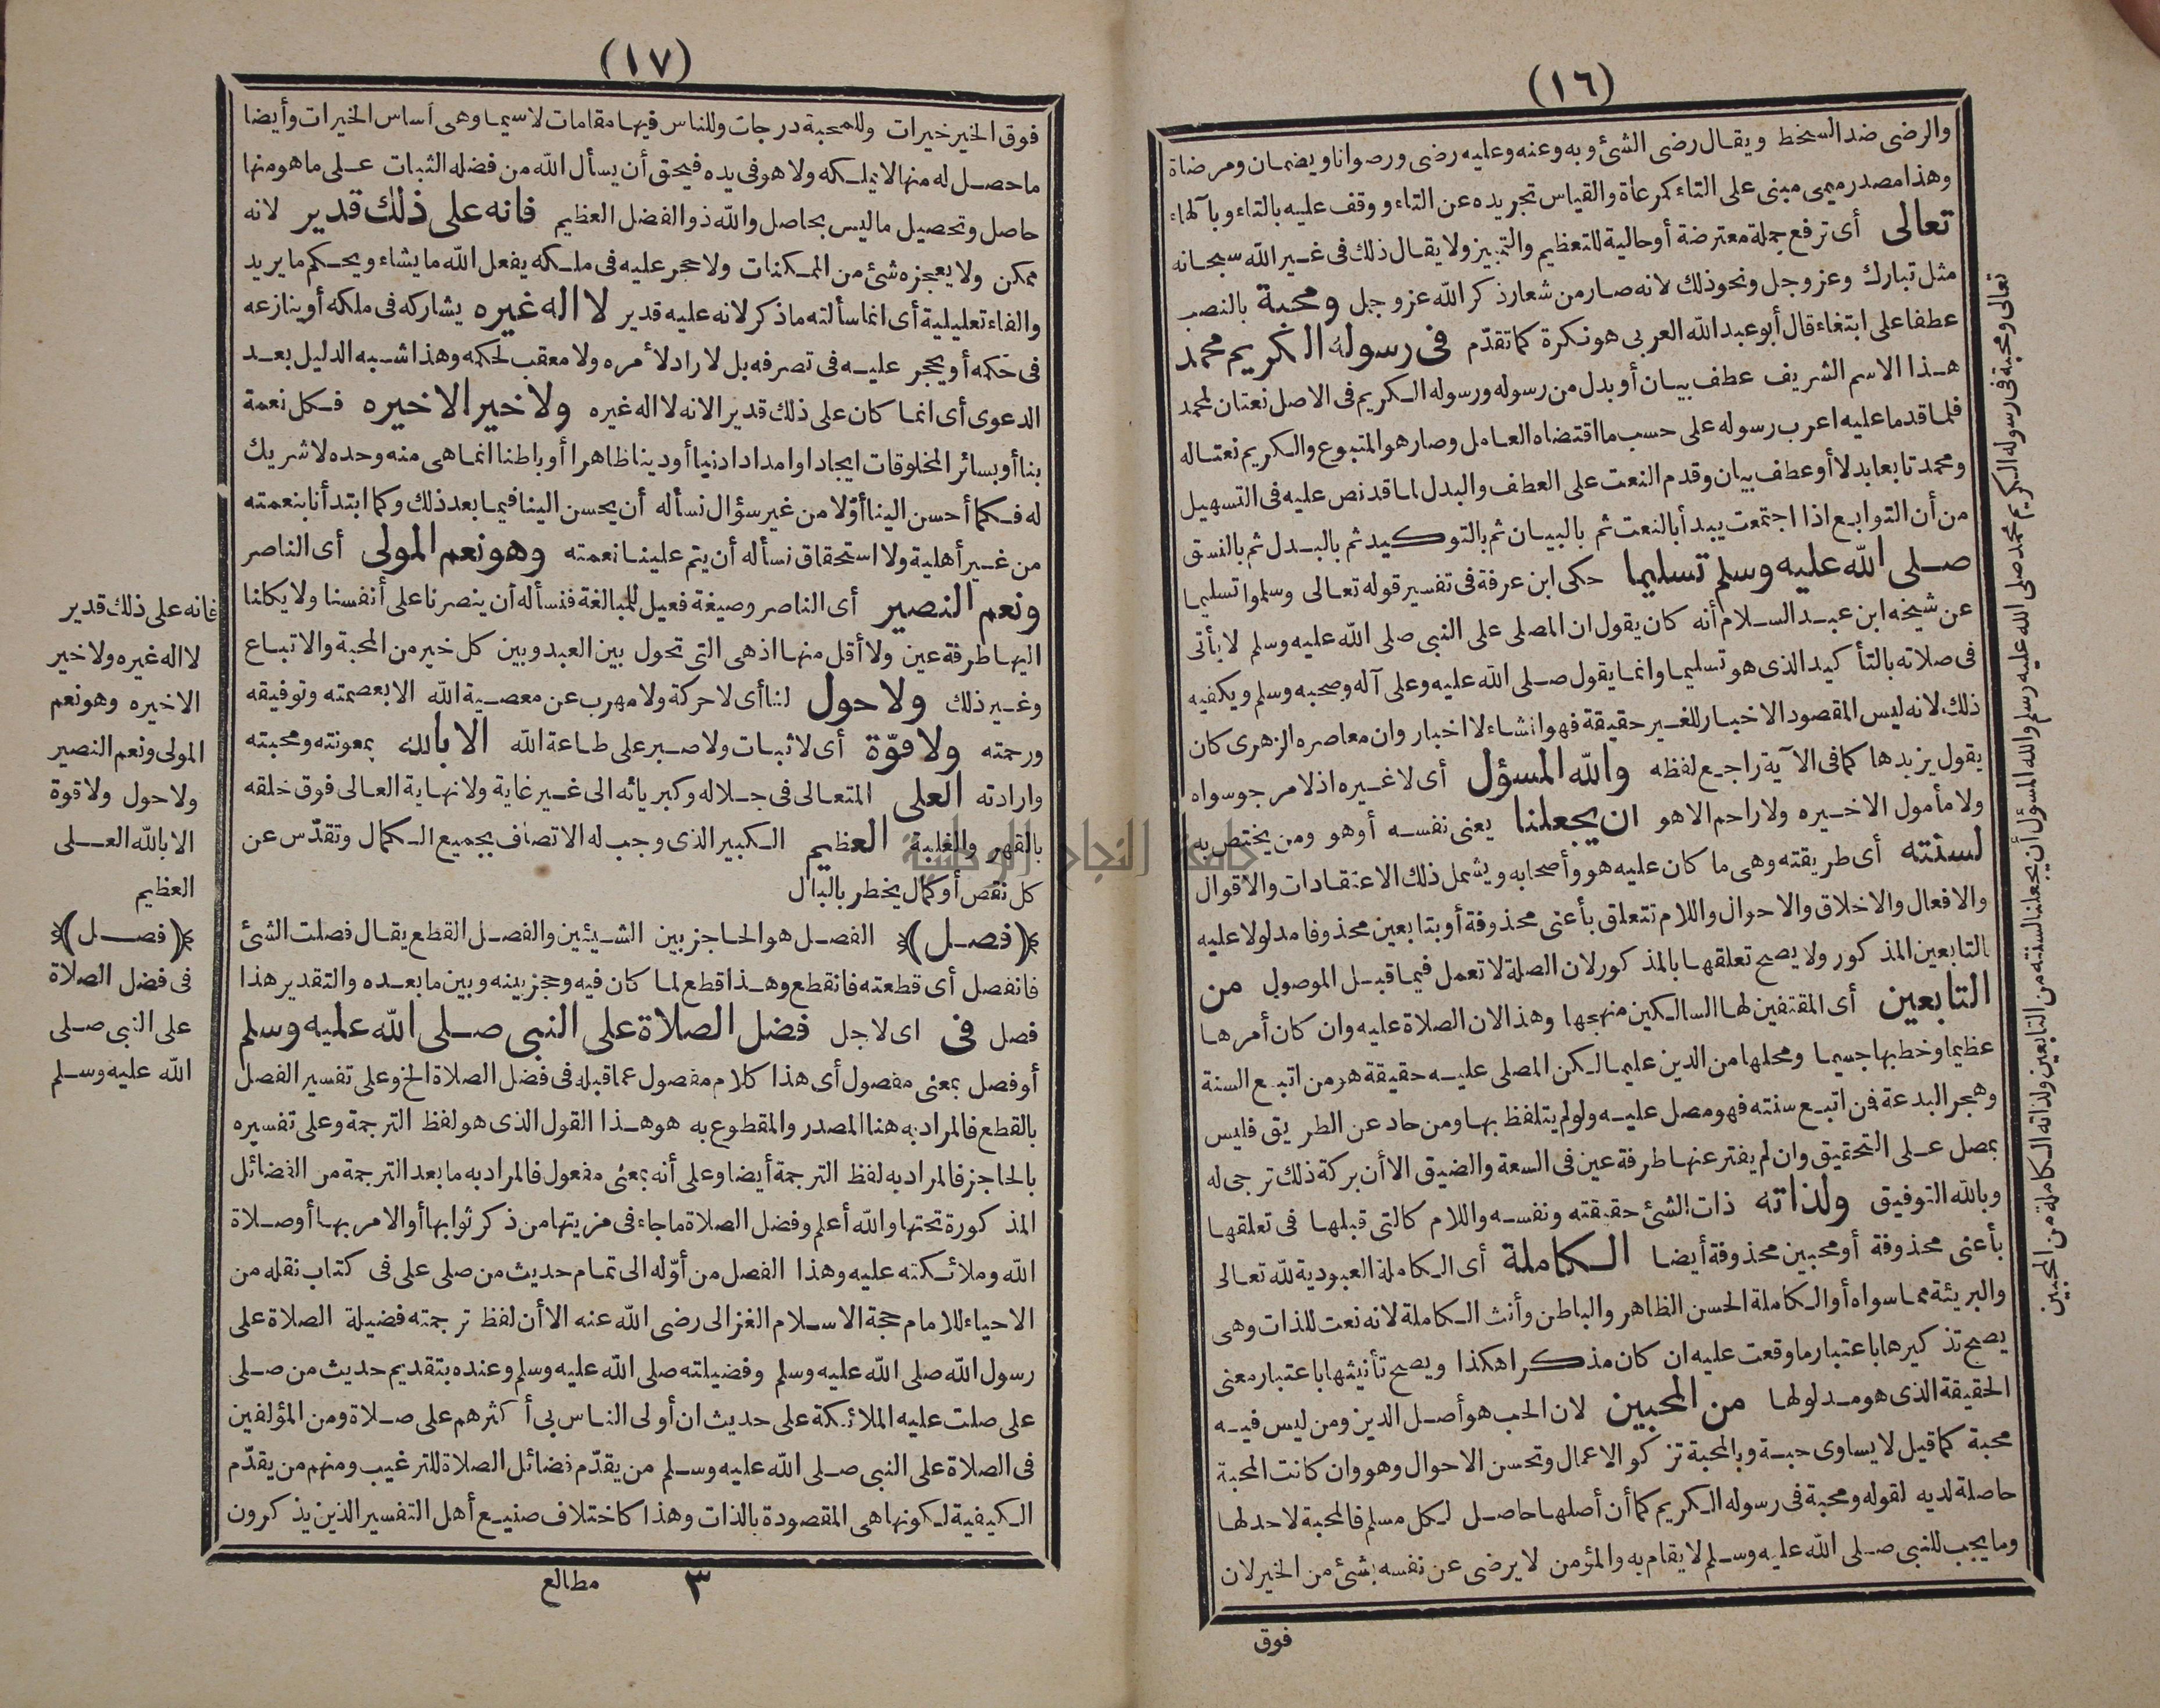 (١٦)
والرضى ضد السخط ويقال رضى الشئ وبه وعنه وعليه رضى ورضوانا ويضمان ومرضاة
وهذا مصدر ميمى مبنى على التاء كمرعاة والقياس تجريده عن التاء ووقف عليه بالتاء وبالهاء
تعالى أى ترفع جملة معترضة أو حالية للتعظيم والتمييز ولا يقال ذلك فى غير الله سبحانه
مثل تبارك وعز وجل ونحو ذلك لانه صار من شعار ذكر الله عز وجل ومحبة بالنصب
عطفا على ابتغاء قال أبو عبد الله العربى هو نكرة كما تقدّم فى رسوله الكريم محمد
هذا الاسم الشريف عطف بيان أو بدل من رسوله ورسوله الكريم فى الاصل نعتان لمحمد
فلما قدما عليه اعرب رسوله على حسب ما اقتضاه العامل وصار هو المتبوع والكريم نعتا له
ومحمد تابعا بدلا أو عطف بيان وقدم النعت على العطف والبدل لما قد نص عليه فى التسهيل
من أن التوابع اذا اجتمعت يبدأ بالنعت ثم بالبيان ثم بالتوكيد ثم بالبدل ثم بالنسق
صلى الله عليه وسلم تسليما حكى ابن عرفة فى تفسير قوله تعالى وسلموا تسليما
عن شيخه ابن عبد السلام أنه كان يقول ان المصلى على النبى صلى الله عليه وسلم لا يأتى
فى صلاته بالتأكيد الذى هو تسليما وانما يقول صلى الله عليه وعلى آله وصحبه وسلم ويكفيه
ذلك لانه ليس المقصود الاخبار للغير حقيقة فهو انشاء لا اخبار وان معاصره الزهرى كان
يقول يزيدها كما فى الآية راجع لفظه والله المسؤل أى لا غيره اذ لا مرجو سواه
ولا مأمول الا خيره ولا راحم الا هو ان يجعلنا يعنى نفسه أو هو ومن يختص به
لسنته أى طريقته وهى ما كان عليه هو وأصحابه ويشمل ذلك الاعتقادات والاقوال
والافعال والاخلاق والاحوال واللام تتعلق بأعنى محذوفة أو بتابعين محذوفا مدلولا عليه
بالتابعين المذكور ولا يصح تعلقها بالمذكور لان الصلة لا تعمل فيما قبل الموصول من
التابعين أى المقتفين لها السالكين منهجها وهذا لان الصلاة عليه وان كان أمرها
عظيما وخطبها جسيما ومحلها من الدين عليما لكن المصلى عليه حقيقة هو من اتبع السنة
وهجر البدعة فمن اتبع سنته فهو مصل عليه ولو لم يتلفظ بها ومن حاد عن الطريق فليس
بمصل على التحقيق وان لم يفتر عنها طرفة عين فى السعة والضيق الا أن بركة ذلك ترجى له
وبالله التوفيق ولذاته ذات الشئ حقيقته ونفسه واللام كالتى قبلها فى تعلقها
بأعنى محذوفة أو محبين محذوفة أيضا الكاملة أى الكاملة العبودية لله تعالى
والبريئة مما سواه أو الكاملة الحسن الظاهر والباطن وأنث الكاملة لانه نعت للذات وهى
يصح تذكيرها باعتبار ما وقعت عليه ان كان مذكرا هكذا ويصح تأنيثها باعتبار معنى
الحقيقة الذى هو مدلولها من المحبين لان الحب هو أصل الدين ومن ليس فيه
محبة كما قيل لا يساوى حبة وبالمحبة تزكو الاعمال وتحسن الاحوال وهو وان كانت المحبة
حاصلة لديه لقوله ومحبة فى رسوله الكريم كما أن أصلها حاصل لكل مسلم فالمحبة لا حد لها
وما يجب للنبى صلى الله عليه وسلم لا يقام به والمؤمن لا يرضى عن نفسه بشئ من الخير لان
فوق
تعالى ومحبة فى رسوله الكريم محمد صلى الله عليه وسلم والله المسؤل أن يجعلنا لسنته من التابعين ولذاته الكاملة من المحبين
(١٧)
فوق الخير خيرات وللمحبة درجات وللناس فيها مقامات لاسيما وهى أساس الخيرات وأيضا
ما حصل له منها لا يملكه ولا هو فى يده فيحق أن يسأل الله من فضله الثبات على ما هو منها
حاصل وتحصيل ما ليس بحاصل والله ذو الفضل العظيم فانه على ذلك قدير لانه
ممكن ولا يعجزه شئ من الممكنات ولا حجر عليه فى ملكه يفعل الله ما يشاء ويحكم ما يريد
والفاء تعليلية أى انما سألته ما ذكر لانه عليه قدير لا اله غيره يشاركه فى ملكه أو ينازعه
فى حكمه أو يحجر عليه فى تصرفه بل لا راد لأمره ولا معقب لحكمه وهذا شبه الدليل بعد
الدعوى أى انما كان على ذلك قدير الانه لا اله غيره ولا خير الا خيره فكل نعمة
بنا أو بسائر المخلوقات ايجادا وامدادا دنيا أو دينا ظاهرا أو باطنا انما هى منه وحده لا شريك
له فكما أحسن الينا أوّلا من غير سؤال نسأله أن يحسن الينا فيما بعد ذلك وكما ابتدأنا بنعمته
من غير أهلية ولا استحقاق نسأله أن يتم علينا نعمته وهو نعم المولى أى الناصر
ونعم النصير أى الناصر وصيغة فعيل للمبالغة فنسأله أن ينصرنا على أنفسنا ولا يكلنا
اليها طرفة عين ولا أقل منها اذ هى التى تحول بين العبد وبين كل خير من المحبة والاتباع
وغير ذلك ولا حول لنا أى لا حركة ولا مهرب عن معصية الله الا بعصمته وتوفيقه
ورحمته ولا قوّة أى لا ثبات ولا صبر على طاعة الله الا بالله بمعونته ومحبته
وارادته العلى المتعالى فى جلاله وكبريائه الى غير غاية ولا نهاية العالى فوق خلقه
بالقهر والغلبة العظيم الكبير الذى وجب له الاتصاف بجميع الكمال وتقدّس عن
كل نقص أو كمال يخطر بالبال
(فصل) الفصل هو الحاجز بين الشيئين والفصل القطع يقال فصلت الشئ
فانفصل أى قطعته فانقطع وهذا قطع لما كان فيه وحجز بينه وبين ما بعده والتقدير هذا
فصل فى اى لاجل فضل الصلاة على النبى صلى الله عليه وسلم
أو فصل بمعنى مفصول أى هذا كلام مفصول عما قبله فى فضل الصلاة الخ وعلى تفسير الفصل
بالقطع فالمراد به هنا المصدر والمقطوع به هو هذا القول الذى هو لفظ الترجمة وعلى تفسيره
بالحاجز فالمراد به لفظ الترجمة أيضا وعلى أنه بمعنى مفعول فالمراد به ما بعد الترجمة من الفضائل
المذكورة تحتها والله أعلم وفضل الصلاة ما جاء فى مزيتها من ذكر ثوابها أو الامر بها أو صلاة
الله وملائكته عليه وهذا الفصل من أوّله الى تمام حديث من صلى على فى كتاب نقله من
الاحياء للامام حجة الاسلام الغزالى رضى الله عنه الا أن لفظ ترجمته فضيلة الصلاة على
رسول الله صلى الله عليه وسلم وفضيلته صلى الله عليه وسلم وعنده بتقديم حديث من صلى
على صلت عليه الملائكة على حديث ان أولى الناس بى أكثرهم على صلاة ومن المؤلفين
فى الصلاة على النبى صلى الله عليه وسلم من يقدّم فضائل الصلاة للترغيب ومنهم من يقدّم
الكيفية لكونها هى المقصودة بالذات وهذا كاختلاف صنيع أهل التفسير الذين يذكرون
٣ مطالع
فانه على ذلك قدير
لا اله غيره ولا خير
الا خيره وهو نعم
المولى ونعم النصير
ولا حول ولا قوة
الا بالله العلى
العظيم
(فصل)
فى فضل الصلاة
على النبى صلى
الله عليه وسلم
جامعة النجاح الوطنية